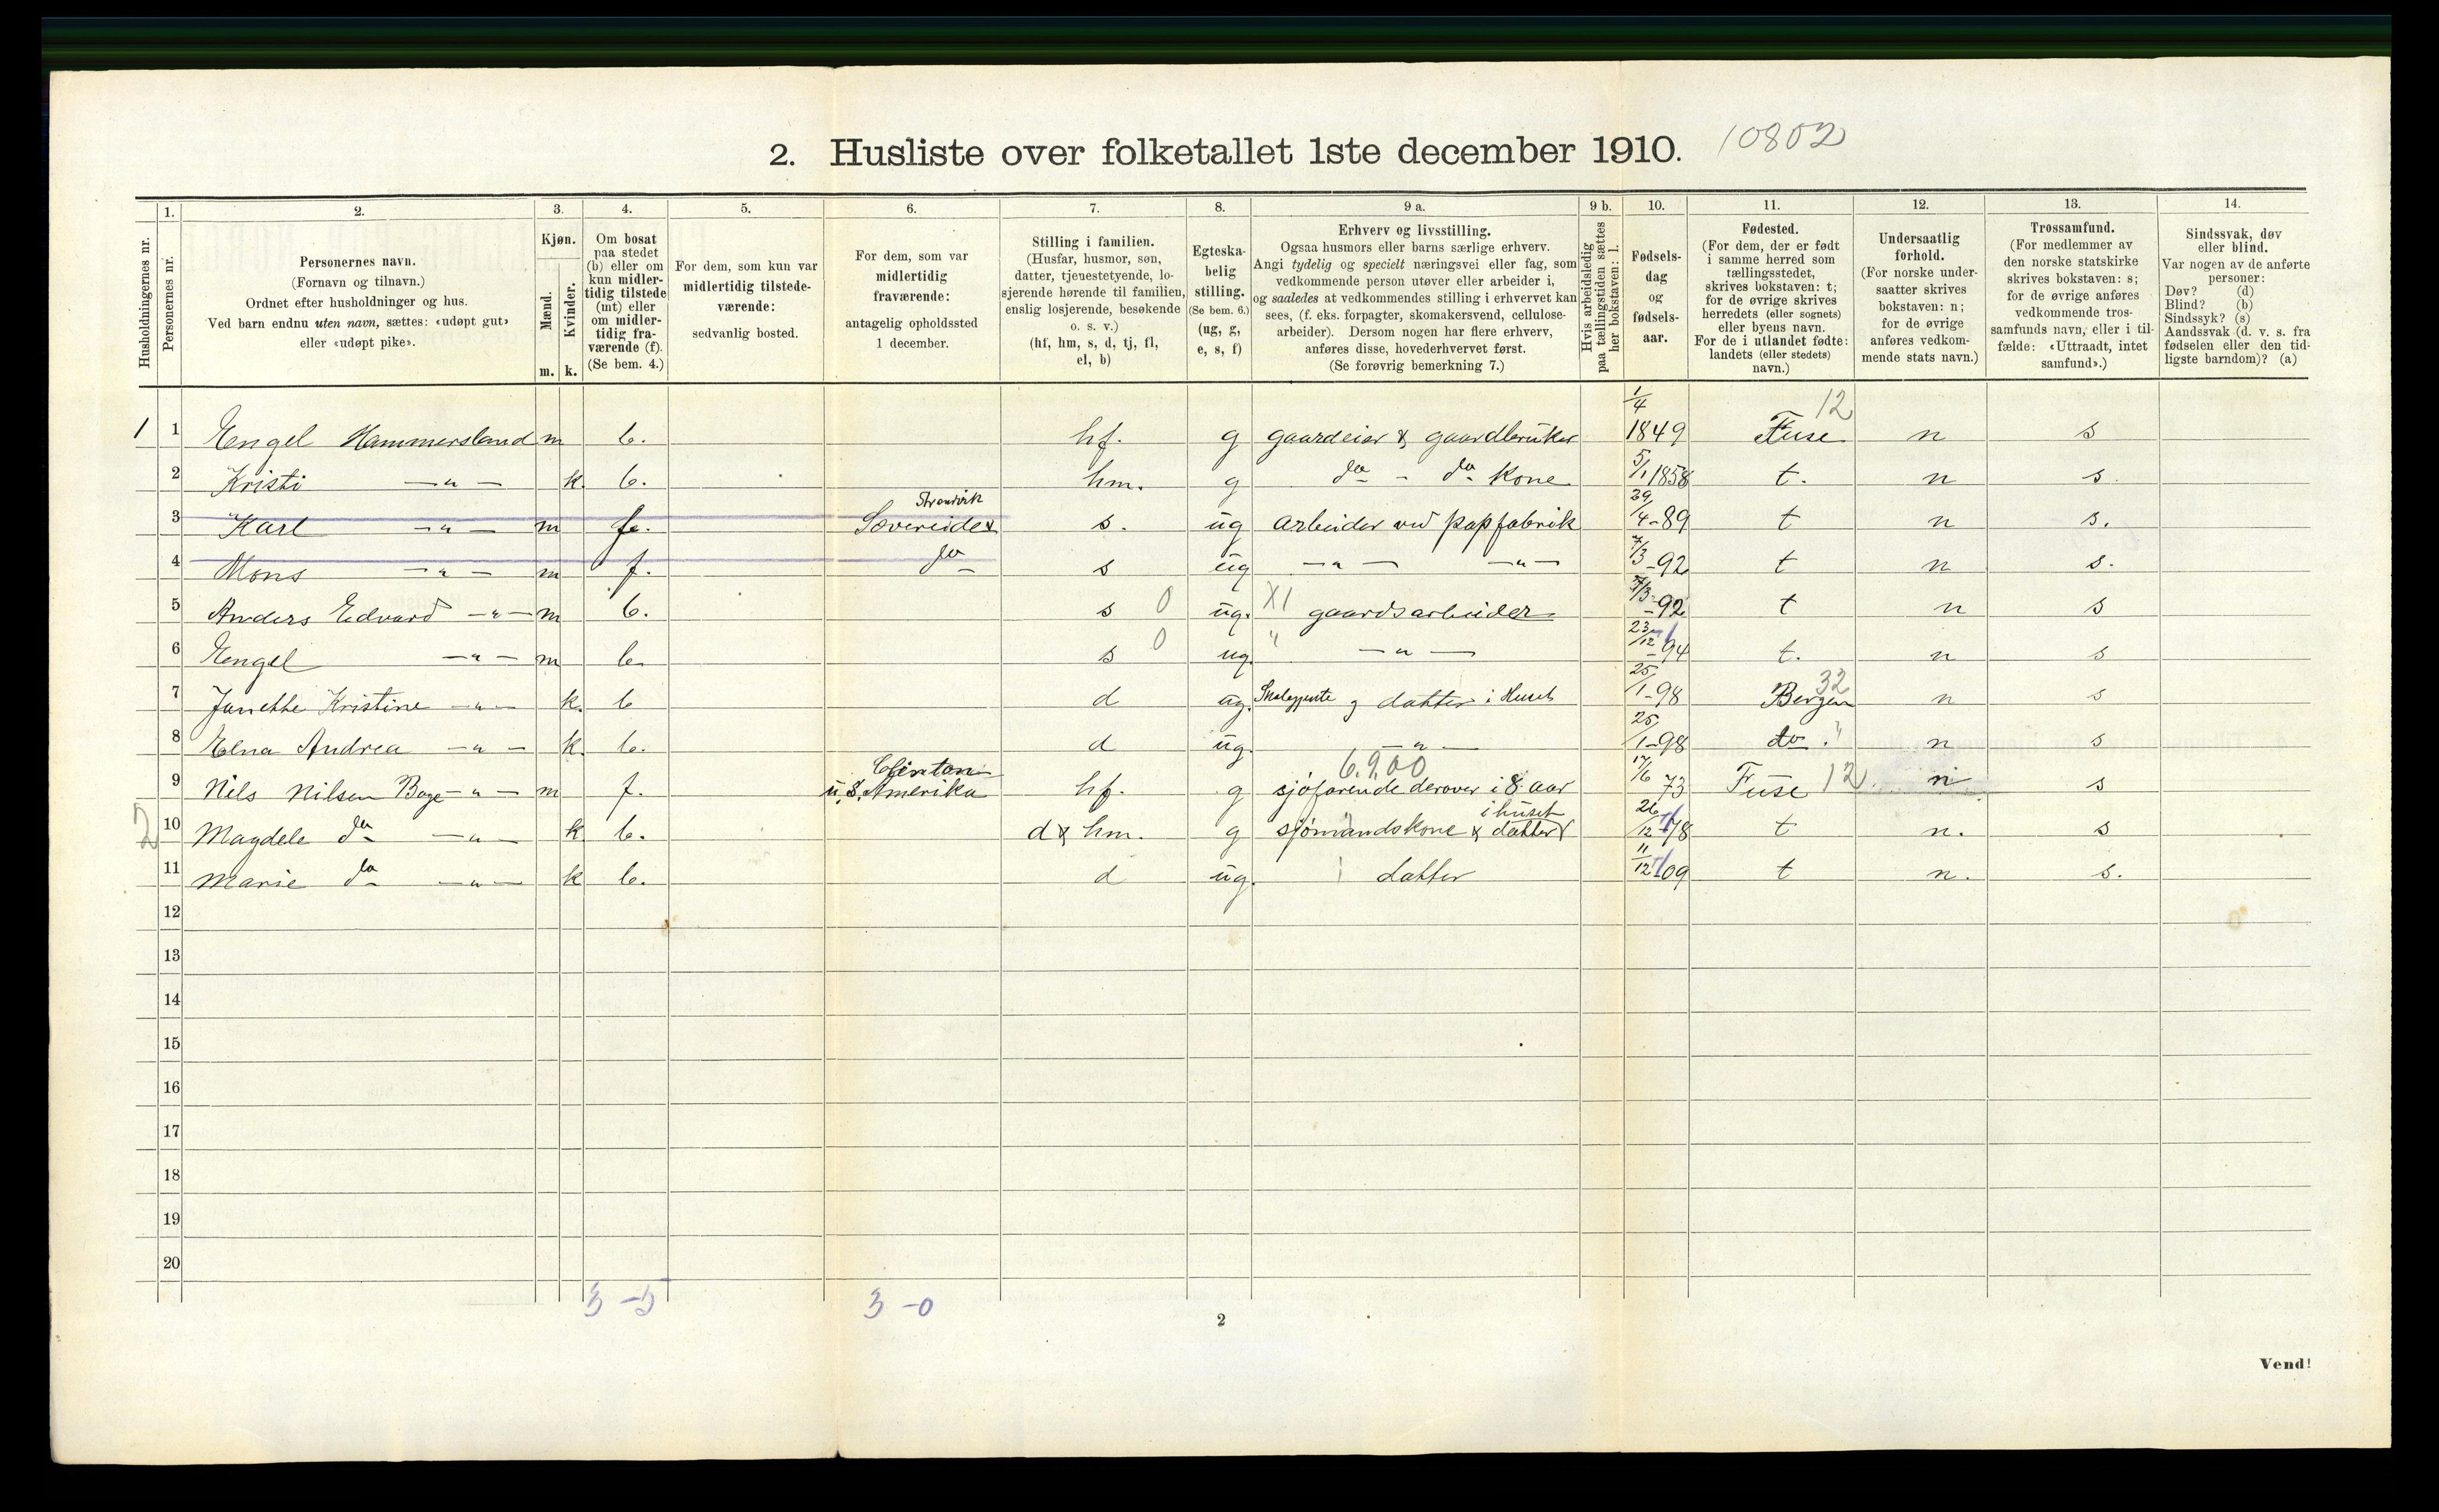 2. Husliste over folketallet 1ste december 1910. 10802
Husholdningernes nr.
1. Personernes nr.
2. Personernes navn. (Fornavn og tilnavn.) Ordnet efter husholdninger og hus. Ved barn endnu uten navn, sættes: «udøpt gut» eller «udøpt pike».
3. Kjøn. Mænd. m. Kvinder. k.
4. Om bosat paa stedet (b) eller om kun midlertidig tilstede (mt) eller om midlertidig fraværende (f). (Se bem. 4.)
5. For dem, som kun var midlertidig tilstedeværende: sedvanlig bosted.
6. For dem, som var midlertidig fraværende: antagelig opholdssted 1 december.
7. Stilling i familien. (Husfar, husmor, søn, datter, tjenestetyende, losjerende hørende til familien, enslig losjerende, besøkende o. s. v.) (hf, hm, s, d, tj, fl, el, b)
8. Egteskabelig stilling. (Se bem. 6.) (ug, g, e, s, f)
9 a. Erhverv og livsstilling. Ogsaa husmors eller barns særlige erhverv. Angi tydelig og specielt næringsvei eller fag, som vedkommende person utøver eller arbeider i, og saaledes at vedkommendes stilling i erhvervet kan sees, (f. eks. forpagter, skomakersvend, cellulosearbeider). Dersom nogen har flere erhverv, anføres disse, hovederhvervet først. (Se forøvrig bemerkning 7.)
9 b. Hvis arbeidsledig paa tællingstiden sættes her bokstaven: l.
10. Fødselsdag og fødselsaar.
11. Fødested. (For dem, der er født i samme herred som tællingsstedet, skrives bokstaven: t; for de øvrige skrives herredets (eller sognets) eller byens navn. For de i utlandet fødte: landets (eller stedets) navn.)
12. Undersaatlig forhold. (For norske undersaatter skrives bokstaven: n; for de øvrige anføres vedkommende stats navn.)
13. Trossamfund. (For medlemmer av den norske statskirke skrives bokstaven: s; for de øvrige anføres vedkommende trossamfunds navn, eller i tilfælde: «Uttraadt, intet samfund».)
14. Sindssvak, døv eller blind. Var nogen av de anførte personer: Døv? (d) Blind? (b) Sindssyk? (s) Aandssvak (d. v. s. fra fødselen eller den tidligste barndom)? (a)
1 1 Engel Hammersland m b. hf. g gaardeier & gaardbruker 1/4 1849 Fuse 12 n s
2 Kristi —„— k. b. hm. g do - do kone 5/1 1858 t. n s.
3 Karl —„— m f. Sævereide Strandvik s. ug arbeider ved papfabrik 29/4-89 t n s.
4 Mons —„— m f. do s ug —„— —„— 7/3-92 t n s.
5 Anders Edvard —„— m b. s 0 ug. X1 gaardsarbeider 7/3-92 t n s
6 Engel —„— m b. s 0 ug. " —„— 23/12-94 t. n s
7 Janethe Kristine —„— k. b d ug. Skolepike og datter i Huset 25/1-98 Bergen 32 n s
8 Elna Andrea —„— k. b. d ug. —„— 25/1-98 do " n s
9 Nils Nilsen Boge —„— m f. Clinton U.S. Amerika hf. g 6.9.00 sjøfarende derover i 8 aar 17/6 73 Fuse 12 n s
2 10 Magdele do —„— k b. d & hm. g sjømandskone & datter i huset 26/12 78 t n. s
11 Marie do —„— k b. d ug. datter 11/12 09 t n. s.
12
13
14
15
16
17
18
19
20
3 - 5 3 - 0
2
Vend!